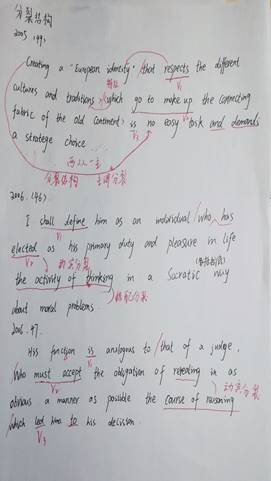 分裂结构
2005. (49)
Creating a "European identity" that respects the different
V1
cultures and traditions, which go to make up the connecting
V2
fabric of the old continent is no easy task and demands
V3
a stratege choice
两从一主
分裂结构 主谓分裂
2006. (46)
I shall define him as an individual who has
V1
elected as his primary duty and pleasure in life
V2 动宾分裂
the activity of thinking in a Socratic way
搭配分裂
about moral problems.
2006. 47.
His function is analogous to that of a judge,
V1
who must accept the obligation of revealing in as
V2 动宾分裂
obvious a manner as possible the course of reasoning
which led him to his decision.
V3